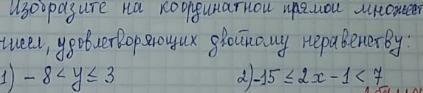 Изобразите на координатной прямой множест
чисел, удовлетворяющих двойному неравенству:
1) -8 < y ≤ 3 2) -15 ≤ 2x - 1 < 7